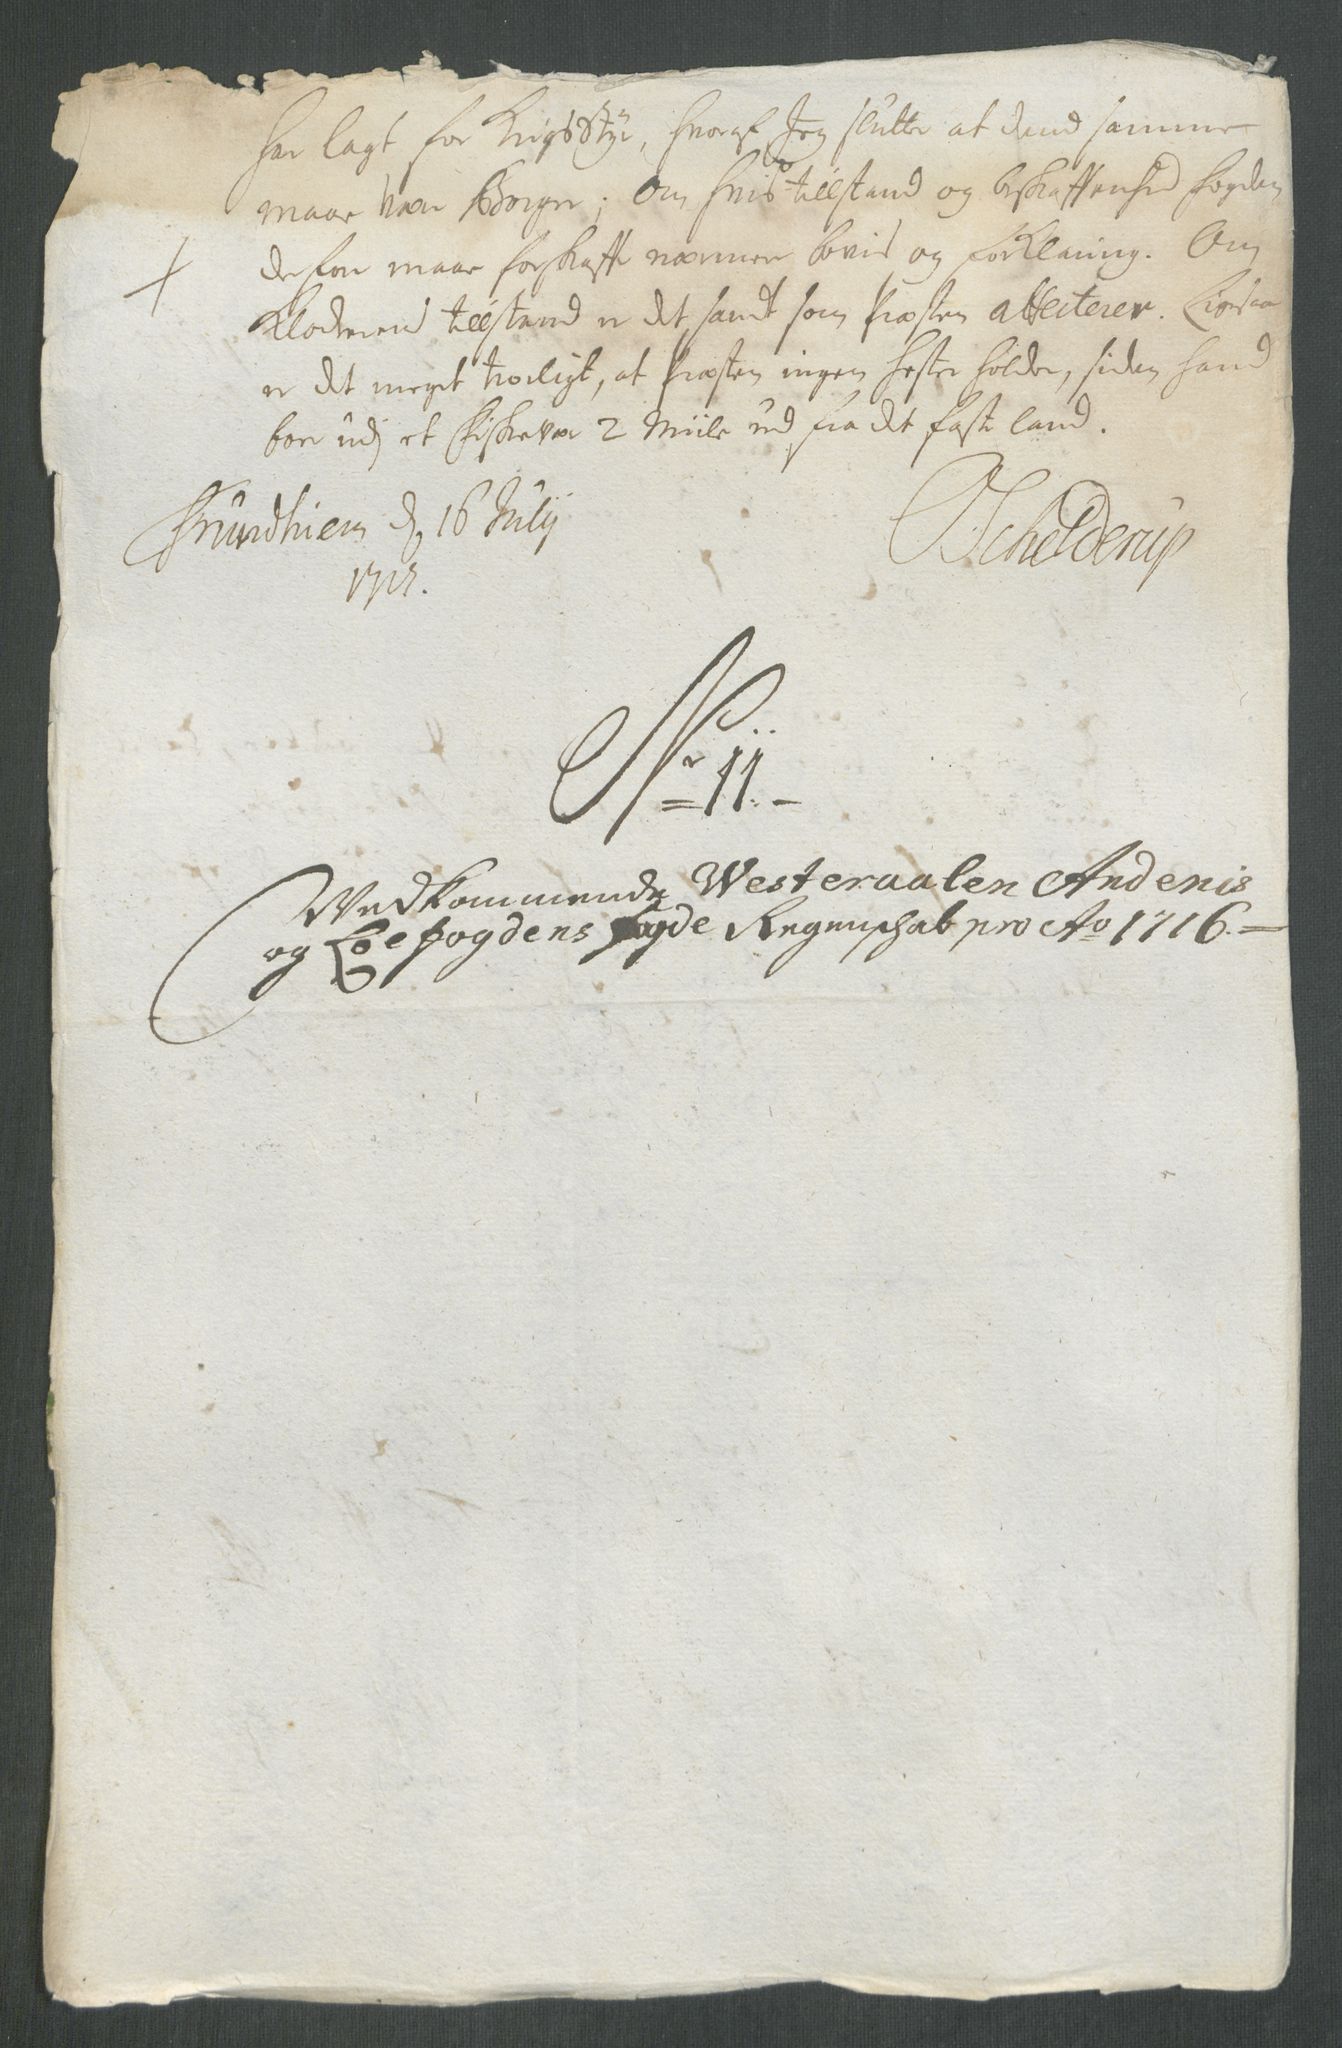 har lagt for KrigsStyr, hvoraf Jeg slutter at dend samme
maae være Borger; Om hvis tilstand og beskaffenhed fogden
derfor maae forskaffe nærmere bevis og forKlaring. Om
Klockerens tilstand er det sandt som Præsten attesterer. Ligesaa
er det meget troeligt, at Præsten ingen hester holder, siden hand
boer udj et fiskevær 2 Miile ud fra det faste land.
Trundhiem d 16 Julij
1715.
Schelderup
Nr 11.
Vedkommende Westeraalen Andenis
og fogdens Regenschab pro Ao 1716.